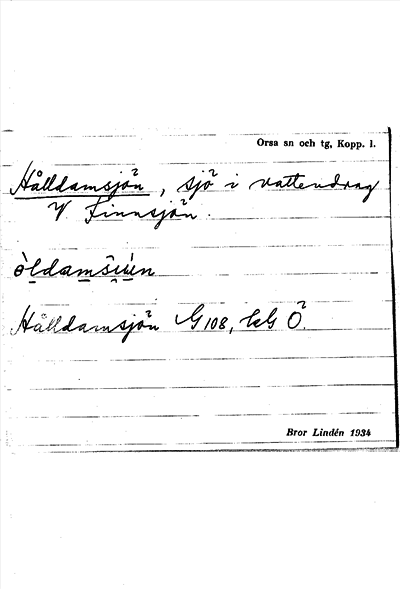 Orsa sn och tg, Kopp. l.
Hålldamsjön, sjö i vattendrag
V Finnsjön.
Hålldamsjön G 108, kG Ö.
Bror Lindén 1934